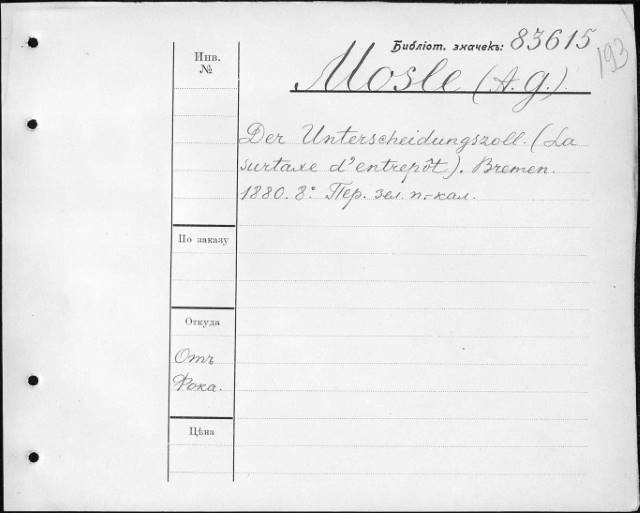 Библіот. значекъ: 83615
193
Инв.
№
Mosle (A. G.).
Der Unterscheidungszoll. (La
surtaxe d'entrepôt). Bremen.
1880. 8° Пер. зел. п.-кал.
По заказу
Откуда
Отъ
Фока.
Цѣна